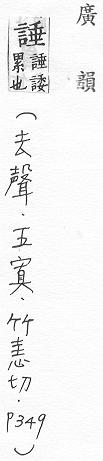 廣韻
諈 諈諉累也（去聲．五寘．竹恚切．P349）